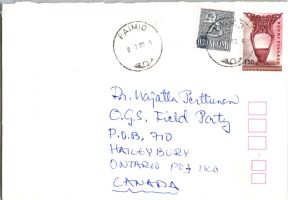 PAIMIO
8.7.80
0,50 SUOMI FINLAND
1,50
Dr. Marjatta Perttunen
O.G.S. Field Party
P.O.B. 710
HAILEYBURY
ONTARIO POJ 1KO
CANADA